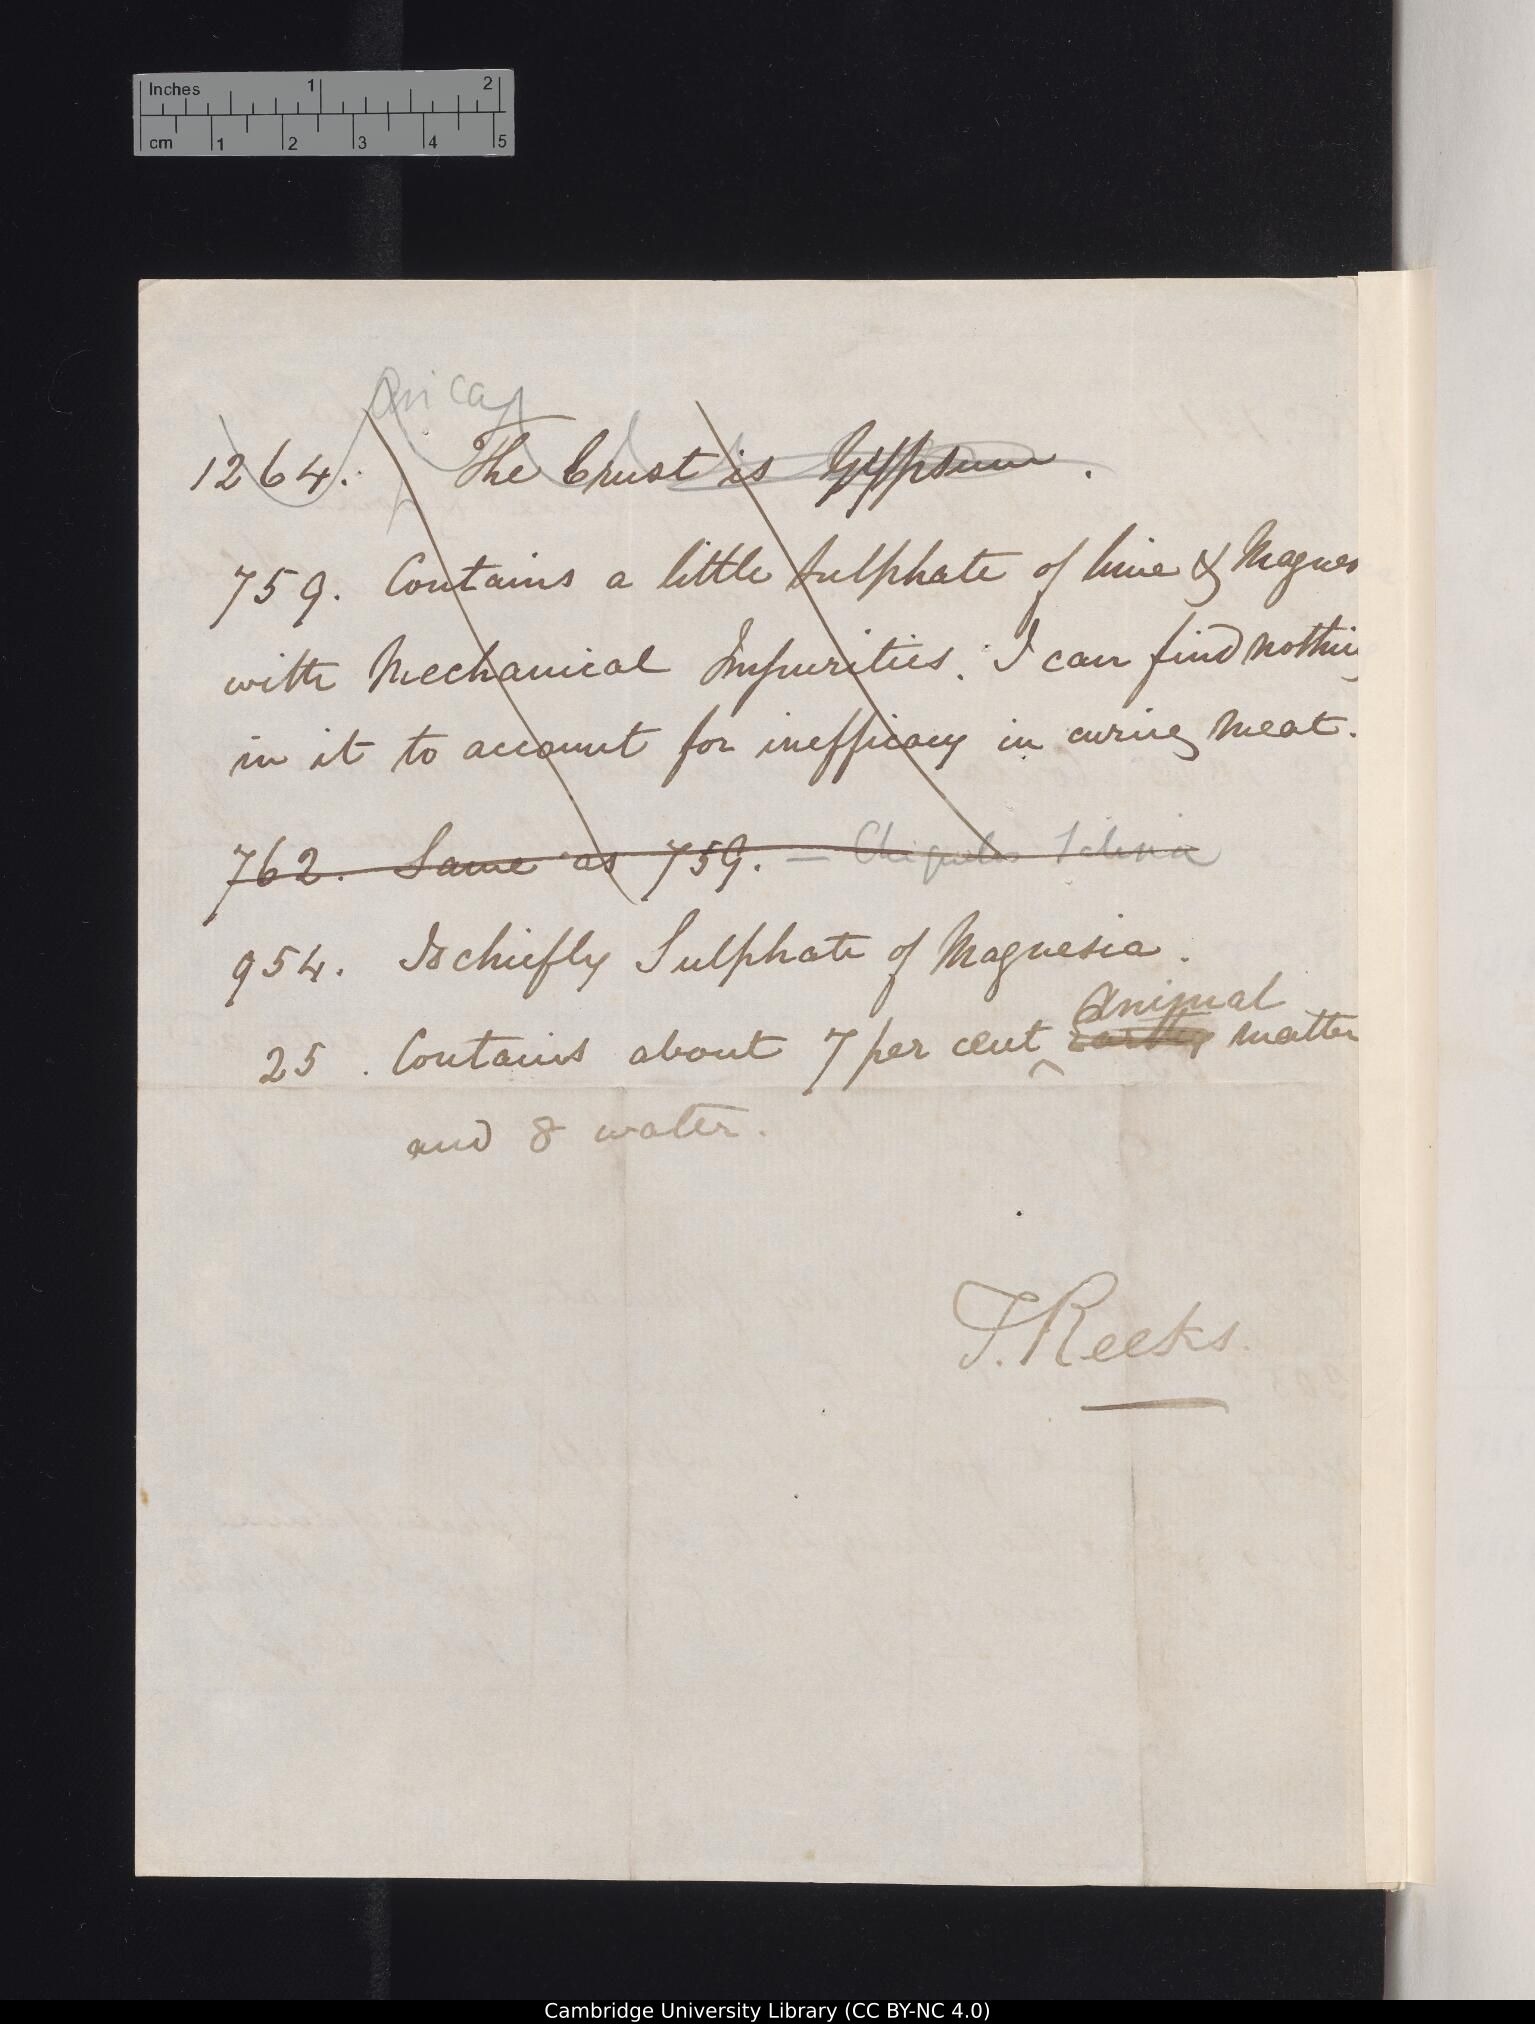 Inches 1 2
cm 1 2 3 4 5
1264. The Crust is Gypsum.
759. Contains a little Sulphate of lime & Magnes
with Mechanical Impurities. I can find nothing
in it to account for inefficacy in curing meat.
762. Same as 759. —
954. Is chiefly Sulphate of Magnesia.
Animal
25. Contains about 7 per cent earthy matter
and 8 water.
T. Reeks.
Cambridge University Library (CC BY-NC 4.0)